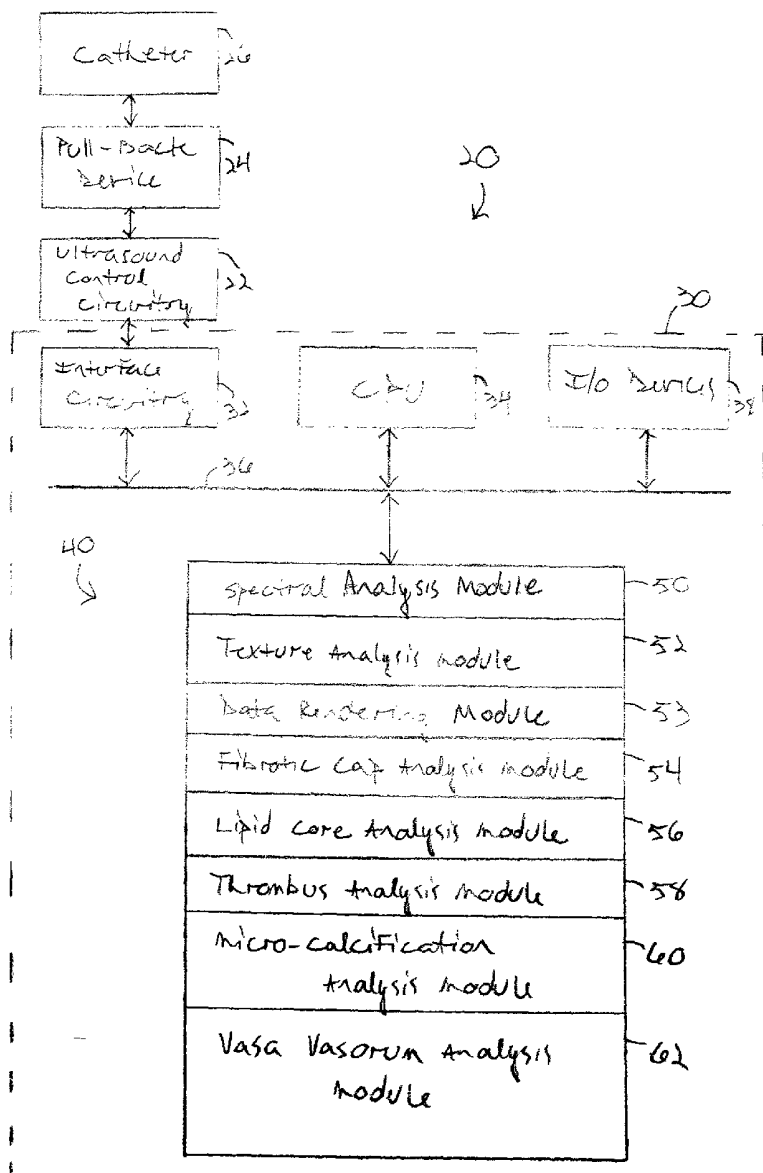 Catheter 26
Pull-Back
Device 24
20
Ultrasound
Control
Circuitry 22
30
Interface
Circuitry 32
CPU 34
I/O Devices 38
36
40
Spectral Analysis Module 50
Texture Analysis module 52
Data Rendering Module 53
Fibrotic Cap Analysis module 54
Lipid Core Analysis module 56
Thrombus Analysis module 58
Micro-calcification
Analysis module 60
Vasa Vasorum Analysis
module 62